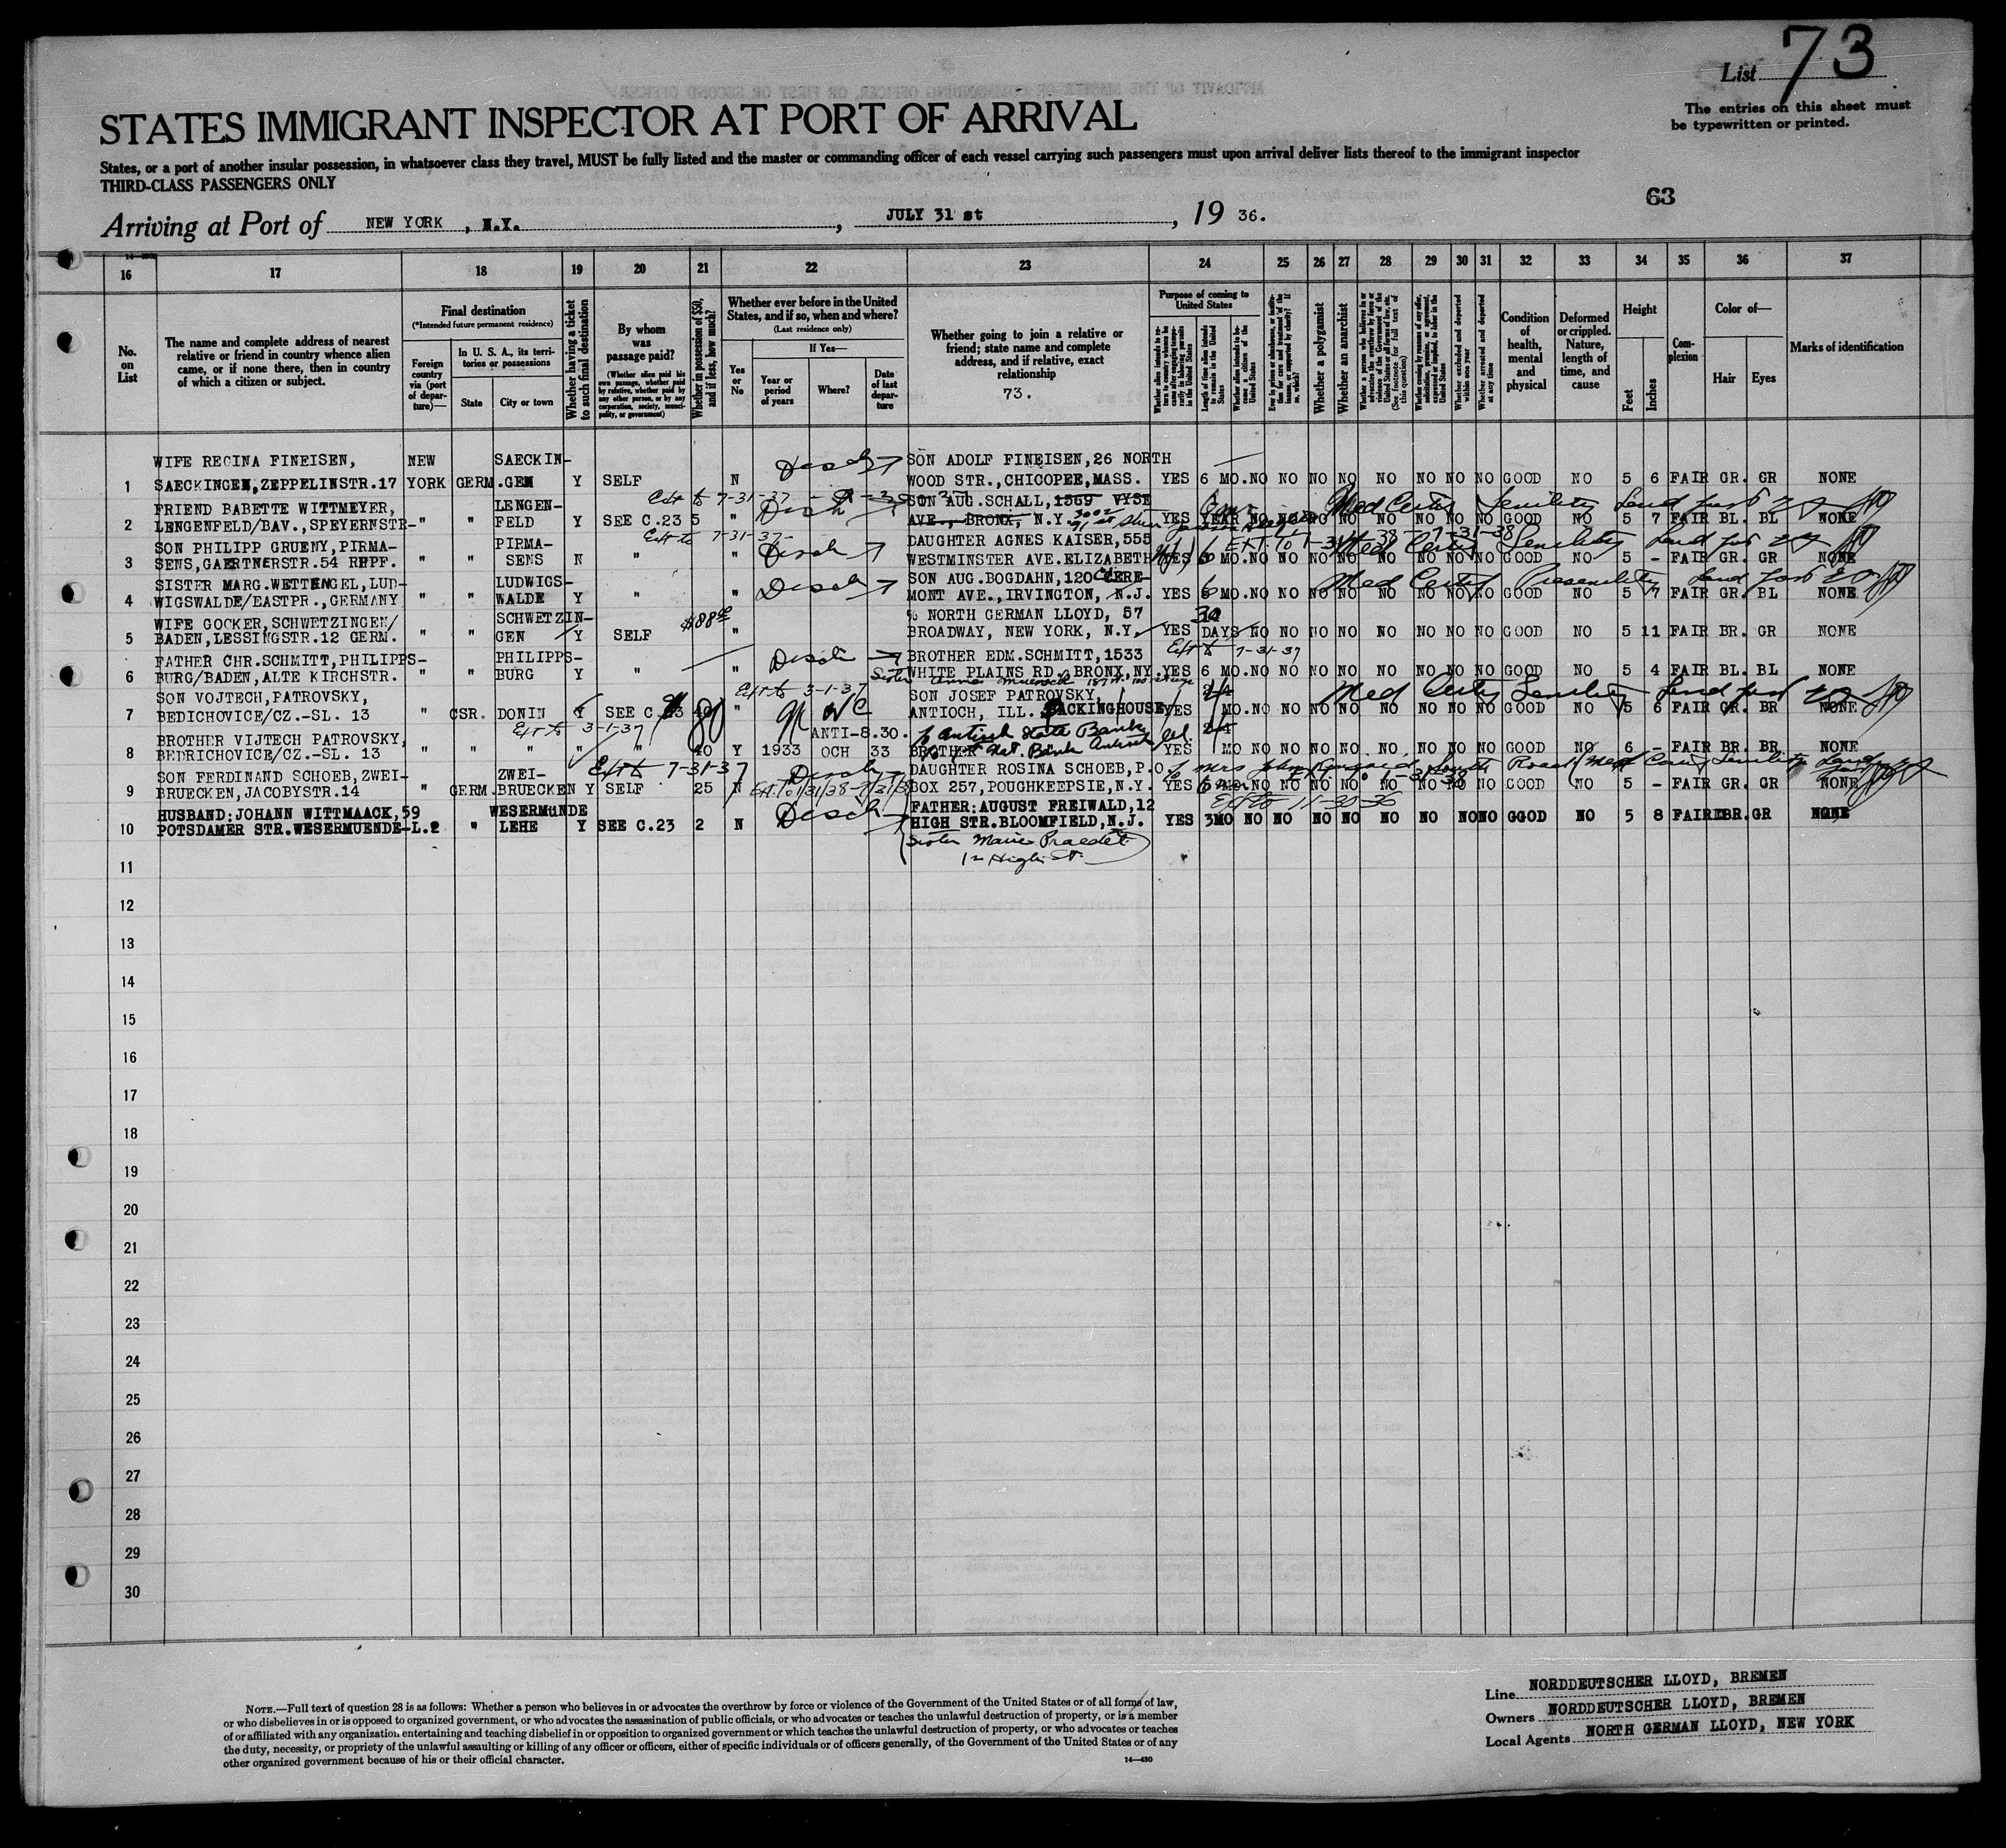 List 73
The entries on this sheet must
be typewritten or printed.
STATES IMMIGRANT INSPECTOR AT PORT OF ARRIVAL
States, or a port of another insular possession, in whatsoever class they travel, MUST be fully listed and the master or commanding officer of each vessel carrying such passengers must upon arrival deliver lists thereof to the immigrant inspector
THIRD-CLASS PASSENGERS ONLY
63
Arriving at Port of NEW YORK, N.Y., JULY 31 st, 19 36.
16 17 18 19 20 21 22 23 24 25 26 27 28 29 30 31 32 33 34 35 36 37
No. on List
The name and complete address of nearest relative or friend in country whence alien came, or if none there, then in country of which a citizen or subject.
Final destination
(*Intended future permanent residence)
Foreign country via (port of departure)—
In U. S. A., its territories or possessions
State
City or town
Whether having a ticket to such final destination
By whom was passage paid?
(Whether alien paid his own passage, whether paid by relative, whether paid by any other person, or by any corporation, society, municipality, or government)
Whether in possession of $50, and if less, how much?
Whether ever before in the United States, and if so, when and where?
(Last residence only)
Yes or No
If Yes—
Year or period of years
Where?
Date of last departure
Whether going to join a relative or friend; state name and complete address, and if relative, exact relationship
73.
Purpose of coming to United States
Whether a polygamist
Whether an anarchist
Condition of health, mental and physical
Deformed or crippled. Nature, length of time, and cause
Height
Feet
Inches
Complexion
Color of—
Hair
Eyes
Marks of identification
WIFE REGINA FINEISEN, NEW SAECKIN- Disch SON ADOLF FINEISEN, 26 NORTH
1 SAECKINGEN, ZEPPELINSTR.17 YORK GERM. GEN Y SELF N WOOD STR., CHICOPEE, MASS. YES 6 MO. NO NO NO NO NO NO NO NO GOOD NO 5 6 FAIR GR. GR NONE
Ext to 7-31-37
FRIEND BABETTE WITTMEYER, LENGEN- Disch SON AUG. SCHALL, 1569 VYSE
2 LENGENFELD/BAV., SPEYERNSTR- " " FELD Y SEE C.23 5 " AVE., BRONX, N.Y. YES YEAR NO NO NO NO NO NO NO NO GOOD NO 5 7 FAIR BL. BL NONE
Med Cert Senility Land
Ext to 7-31-37
SON PHILIPP GRUENY, PIRMA- PIRMA- Disch DAUGHTER AGNES KAISER, 555
3 SENS, GAERTNERSTR.54 RHPF. " " SENS N " " WESTMINSTER AVE. ELIZABETH YES 6 MO. NO NO NO NO NO NO NO NO GOOD NO 5 - FAIR GR. GR NONE
Med Cert Senility Land
SISTER MARG. WETTENGEL, LUD- LUDWIGS- Disch SON AUG. BOGDAHN, 120 CLERE-
4 WIGSWALDE/EASTPR., GERMANY " " WALDE Y " " MONT AVE., IRVINGTON, N.J. YES 6 MO. NO NO NO NO NO NO NO NO GOOD NO 5 7 FAIR GR. BL NONE
Med Cert Presenility Land
WIFE GOCKER, SCHWETZINGEN/ SCHWETZIN- % NORTH GERMAN LLOYD, 57 30
5 BADEN, LESSINGSTR.12 GERM. " " GEN Y SELF $88 " BROADWAY, NEW YORK, N.Y. YES DAYS NO NO NO NO NO NO NO NO GOOD NO 5 11 FAIR BR. GR NONE
Ext to 7-31-37
FATHER CHR. SCHMITT, PHILIPPS- PHILIPPS- Disch BROTHER EDM. SCHMITT, 1533
6 BURG/BADEN, ALTE KIRCHSTR. " " BURG Y " " WHITE PLAINS RD., BRONX, NY. YES 6 MO. NO NO NO NO NO NO NO NO GOOD NO 5 4 FAIR BL. BL NONE
Ext to 3-1-37
SON VOJTECH, PATROVSKY, SON JOSEF PATROVSKY,
7 BEDICHOVICE/CZ.-SL. 13 " CSR. DONIN Y SEE C.23 40 " ANTIOCH, ILL. PACKINGHOUSE YES MO. NO NO NO NO NO NO NO NO GOOD NO 5 6 FAIR GR. BR NONE
Med Cert Senility Land
Ext to 3-1-37
BROTHER VIJTECH PATROVSKY, ANTI- 8.30. % Antioch State Bank
8 BEDRICHOVICE/CZ.-SL. 13 " " " " " 40 Y 1933 OCH 33 BROTHER YES MO NO NO NO NO NO NO NO NO GOOD NO 6 - FAIR BR. BR NONE
Ext to 7-31-37
SON FERDINAND SCHOEB, ZWEI- ZWEI- Disch DAUGHTER ROSINA SCHOEB, P.O.
9 BRUECKEN, JACOBYSTR.14 " GERM. BRUECKEN Y SELF 25 N BOX 257, POUGHKEEPSIE, N.Y. YES 6 MO. NO NO NO NO NO NO NO NO GOOD NO 5 - FAIR GR. GR NONE
Ext to 11-30-36
HUSBAND: JOHANN WITTMAACK, 59 WESERMüNDE Disch FATHER: AUGUST FREIWALD, 12
10 POTSDAMER STR. WESERMUENDE-L.2 " LEHE Y SEE C.23 2 N HIGH STR. BLOOMFIELD, N.J. YES 3MO NO NO NO NO NO NO NO NO GGOD NO 5 8 FAIR DBR. GR NONE
Sister Marie Praedel
12 High St.
11
12
13
14
15
16
17
18
19
20
21
22
23
24
25
26
27
28
29
30
NOTE.—Full text of question 28 is as follows: Whether a person who believes in or advocates the overthrow by force or violence of the Government of the United States or of all forms of law,
or who disbelieves in or is opposed to organized government, or who advocates the assassination of public officials, or who advocates or teaches the unlawful destruction of property, or is a member
of or affiliated with any organization entertaining and teaching disbelief in or opposition to organized government or which teaches the unlawful destruction of property, or who advocates or teaches
the duty, necessity, or propriety of the unlawful assaulting or killing of any officer or officers, either of specific individuals or of officers generally, of the Government of the United States or of any
other organized government because of his or their official character.
14—480
Line NORDDEUTSCHER LLOYD, BREMEN
Owners NORDDEUTSCHER LLOYD, BREMEN
Local Agents NORTH GERMAN LLOYD, NEW YORK